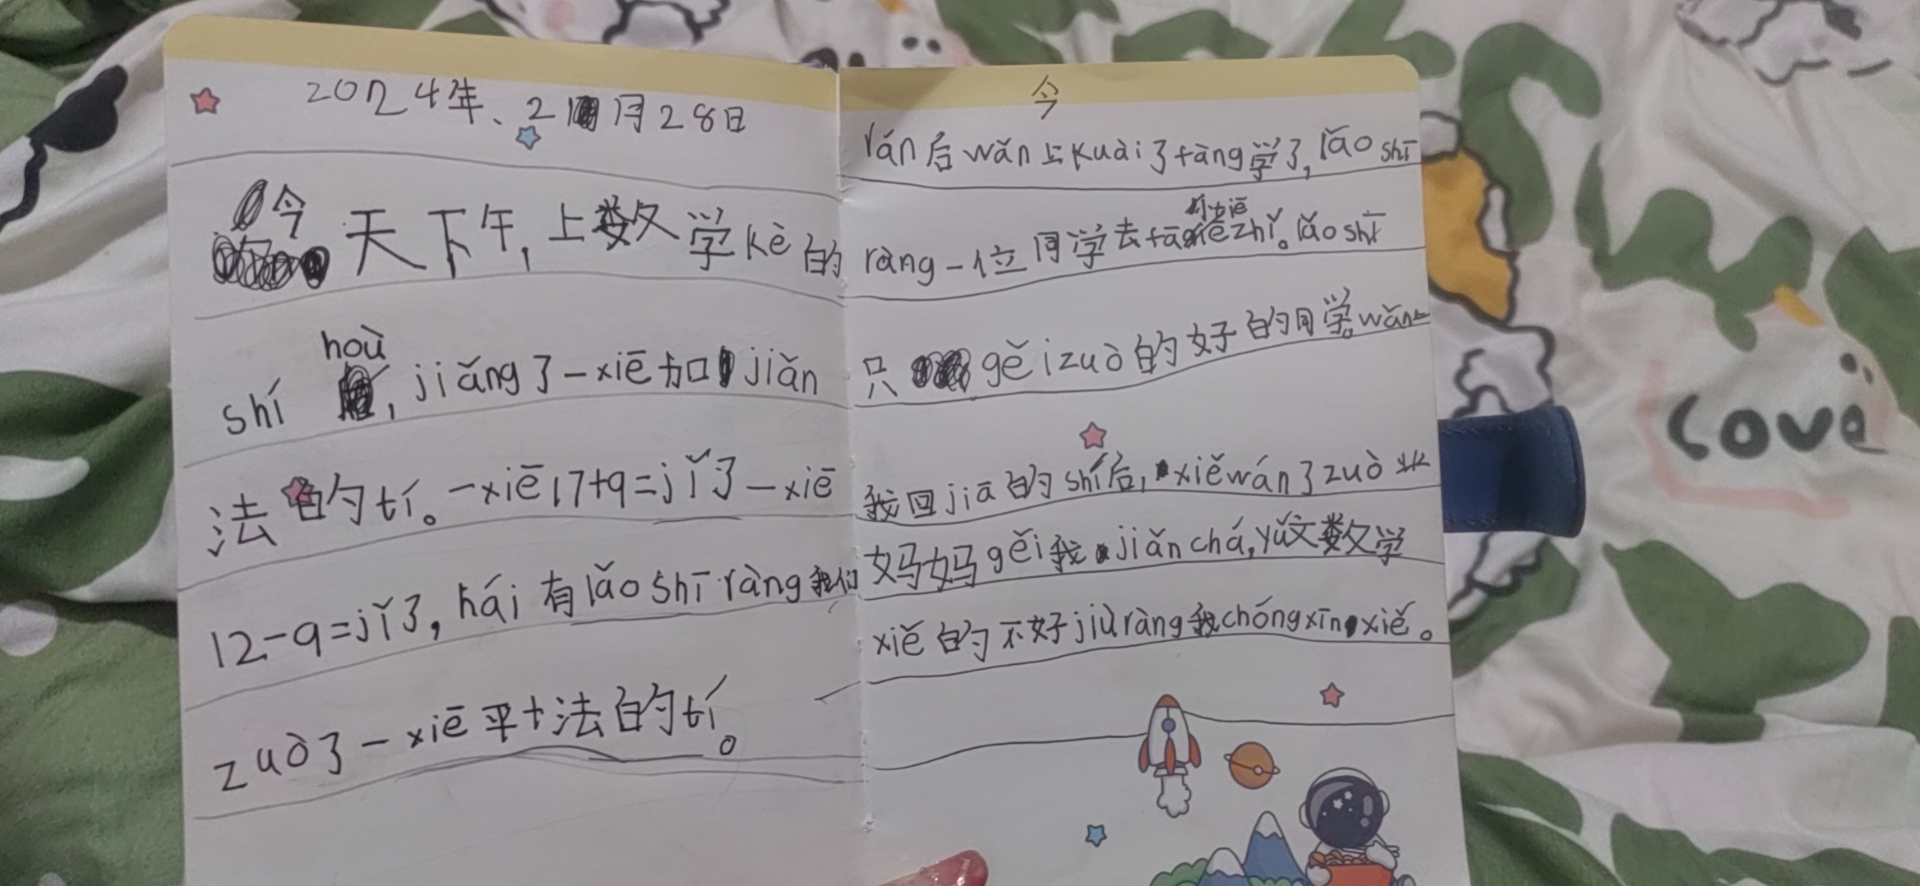 2024年、2月28日
今天下午，上数学kè的
shí hoù，jiǎng了一xiē加jiǎn
法的tí。一xiē17+9=jǐ了一xiē
12-9=jǐ了，hái有lǎo shī ràng我们
zuò了一xiē平十法的tí。
今
rán后wǎn上kuài了fàng学了，lǎo shī
ràng一位同学去fā zhǐ。lǎo shī
只gěi zuò的好的同学。wǎn上
我回jiā的shí后，xiě wán了zuò业
妈妈gěi我jiǎn chá，yǔ文数学
xiě的不好jiù ràng我chóng xīn xiě。
Love